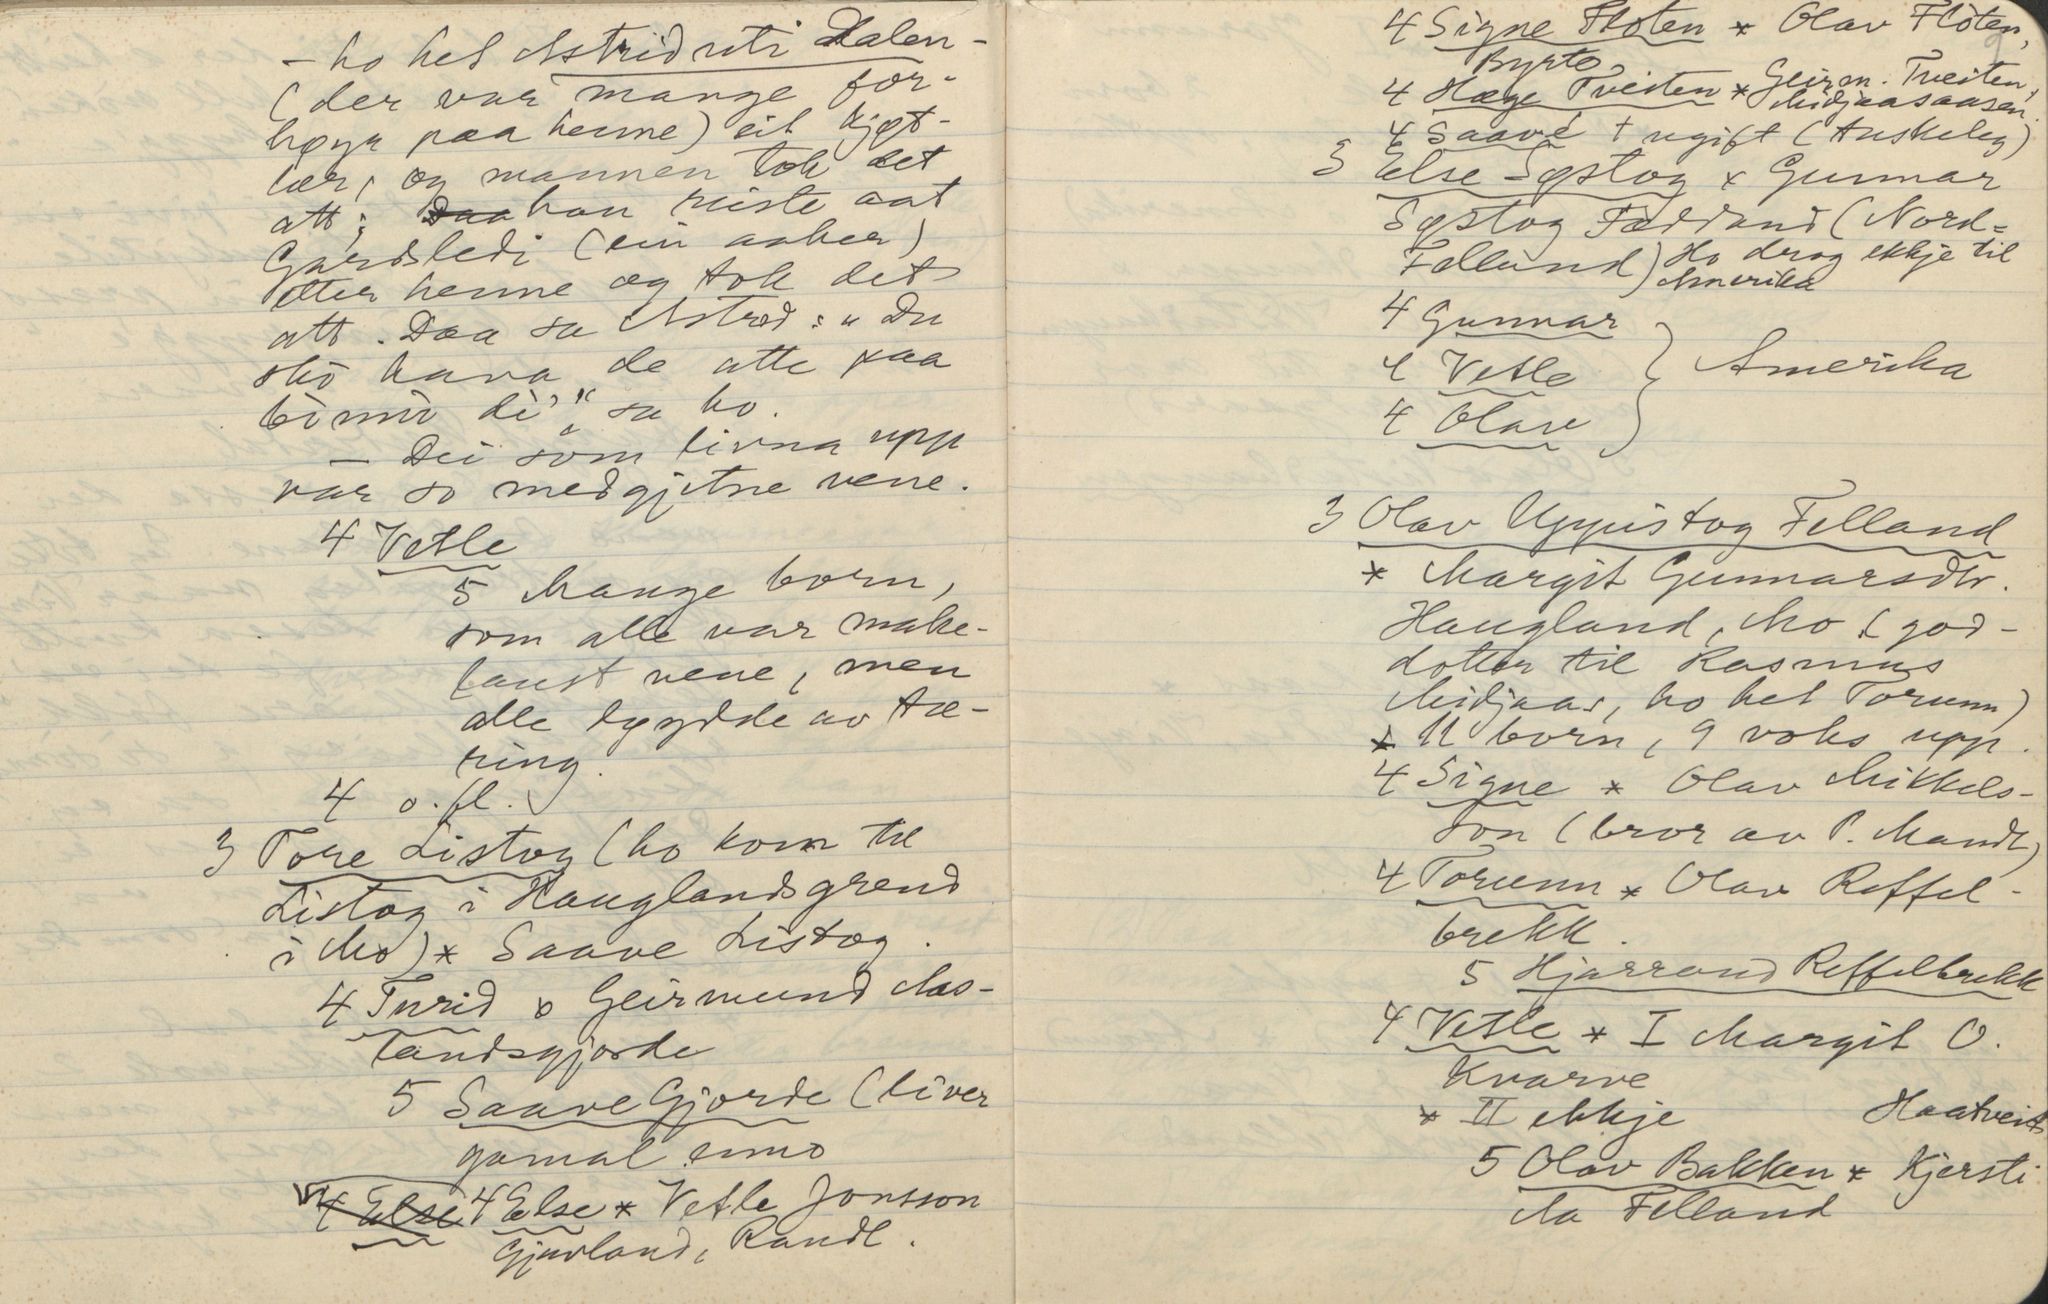 – ho het Astrid uti Dalen –
(der var mange for-
høyr paa henne) eit kjøt-
lær, og mannen tok det
att; Daa han reiste aat
Gardsledi (ein aaker)
etter henne og tok det
att. Daa sa Astrid: "Du
sko hava de atte paa
di", sa ho.
– Dei som livna upp
var so medgjetne vene.
4 Vetle
5 Mange born,
som alle var make-
laust vene, men
alle døydde av tæ-
ring.
4 o. fl.
3 Tore Listog (ho kom til
Listog i Hauglandsgrend
i Mo) * Saave Listog.
4 Turid * Geirmund Aas-
landsgjorde
5 Saave Gjorde (liver
gamal enno
4 Else 4 Else * Vetle Jonsson
Gjuvland, Raudl.
4 Signe Floten * Olav Floten,
Byrte
4 Hæge Tveiten * Geirm. Tveiten,
Midjaasaasen.
4 Saave † ugift (Auskeleg)
3 Else Søstog * Gunnar
Søstog Fedland (Nord-
Felland) Ho drog ekkje til
Amerika
4 Gunnar
4 Vetle } Amerika
4 Olav
3 Olav Uppistog Felland
* Margit Gunnarsdtr.
Haugland, Mo (god-
dotter til Rasmus
Midjaas, ho het Torunn)
* 11 born, 9 voks upp.
4 Signe * Olav Mikkels-
son (bror av P. Mandt)
4 Torunn * Olav Roffel-
brekk.
5 Hjarrand Reffelbrekk
4 Vetle * I Margit O.
Kvarve
* II ekkje Haatveit
5 Olav Bakken * Kjersti
Aa Felland